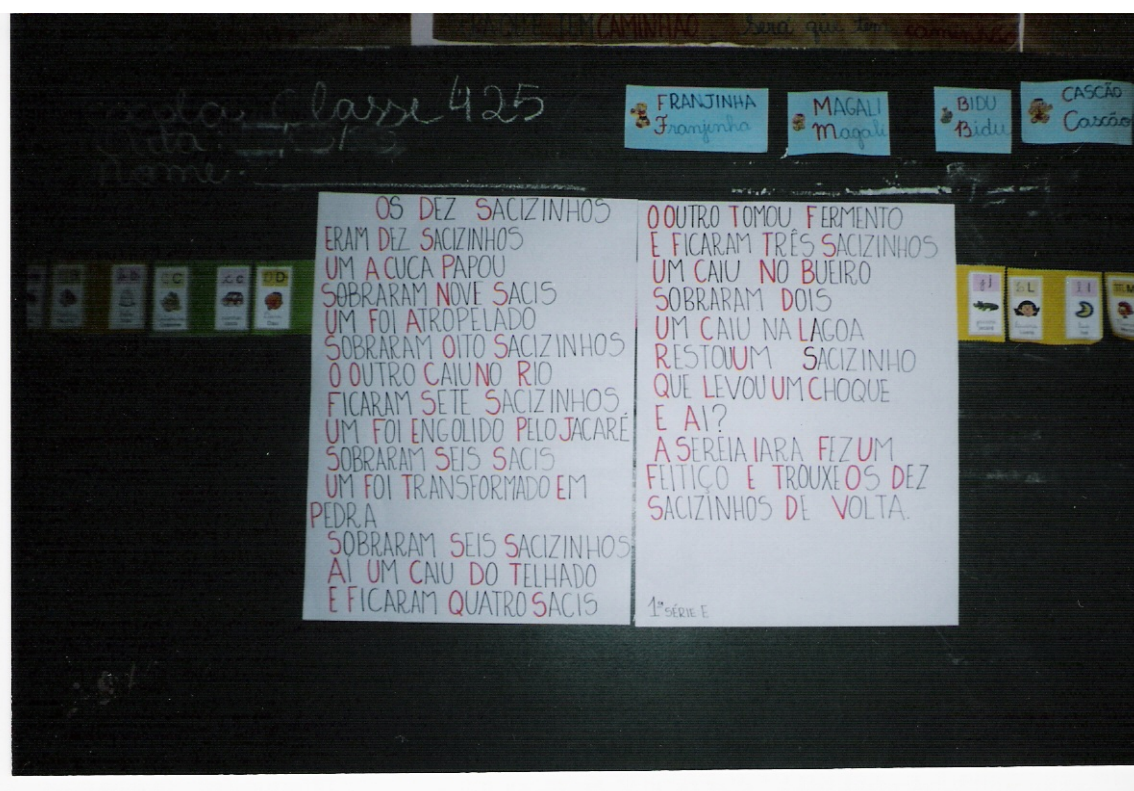 SERÁ QUE TEM CAMINHÃO
Será que tem caminhão
Classe 425
FRANJINHA
Franjinha
MAGALI
Magali
BIDU
Bidu
CASCÃO
Cascão
nome
OS DEZ SACIZINHOS
ERAM DEZ SACIZINHOS
UM A CUCA PAPOU
SOBRARAM NOVE SACIS
UM FOI ATROPELADO
SOBRARAM OITO SACIZINHOS
O OUTRO CAIU NO RIO
FICARAM SETE SACIZINHOS
UM FOI ENGOLIDO PELO JACARÉ
SOBRARAM SEIS SACIS
UM FOI TRANSFORMADO EM
PEDRA
SOBRARAM SEIS SACIZINHOS
AI UM CAIU DO TELHADO
E FICARAM QUATRO SACIS
O OUTRO TOMOU FERMENTO
E FICARAM TRÊS SACIZINHOS
UM CAIU NO BUEIRO
SOBRARAM DOIS
UM CAIU NA LAGOA
RESTOU UM SACIZINHO
QUE LEVOU UM CHOQUE
E AI?
A SEREIA IARA FEZ UM
FEITIÇO E TROUXE OS DEZ
SACIZINHOS DE VOLTA.
1ª SÉRIE E
B
C C
C C
D D
J
L
M